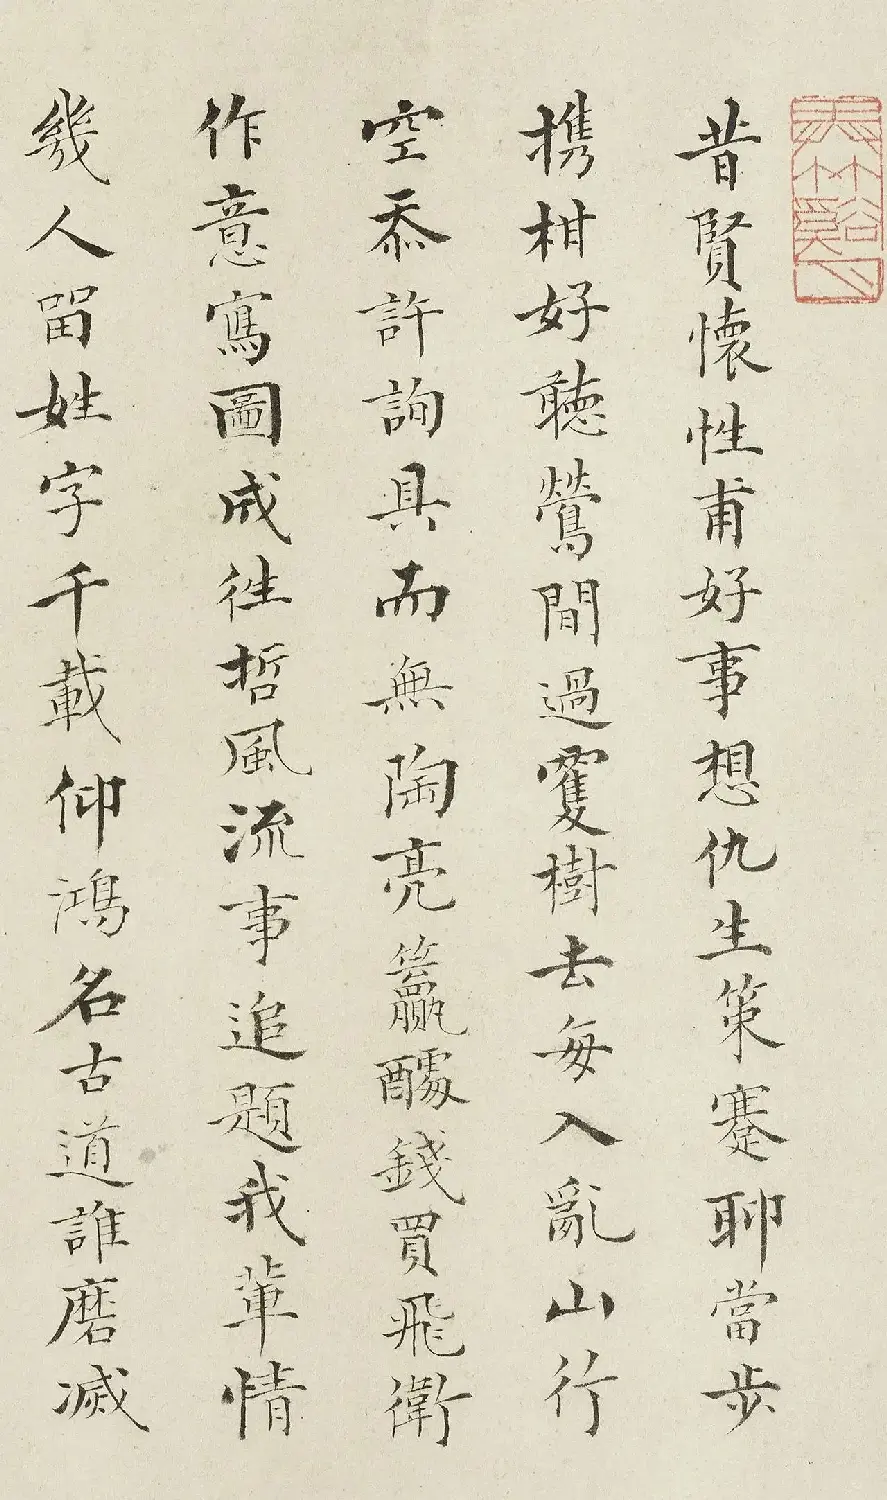 昔賢懐性甫好事想仇生策蹇聊當步
携柑好聴鶯間過雙樹去每入亂山行
空忝許詢具而無陶亮籯醵錢買飛衛
作意寫圖成徃哲風流事追題我輩情
幾人留姓字千載仰鴻名古道誰磨滅